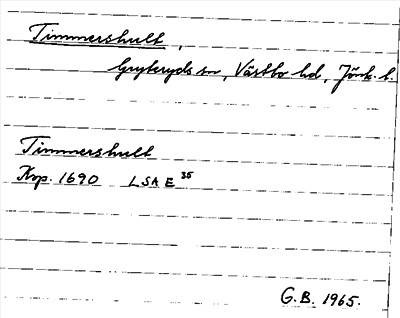 Timmershult,
Gryteryds sn, Västbo hd, Jönk. l.
Timmershult
Krp. 1690 LSA E 35
G.B. 1965.